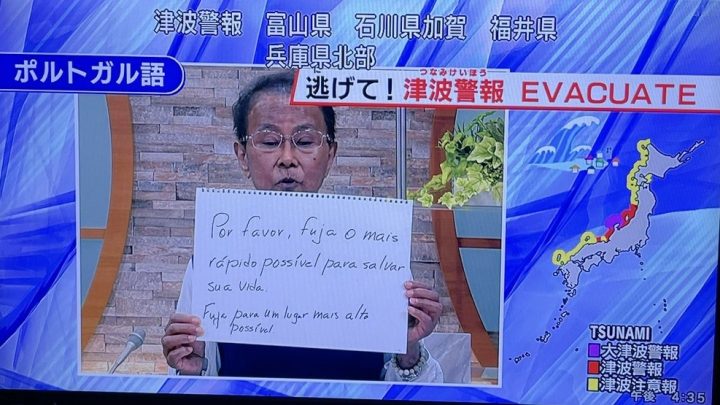 津波警報　富山県　石川県加賀　福井県
兵庫県北部
ポルトガル語
つなみけいほう
逃げて！津波警報 EVACUATE
Por favor, fuja o mais
rápido possível para salvar
sua vida.
Fuja para um lugar mais alto
possível
TSUNAMI
大津波警報
津波警報
津波注意報
午後 4:35